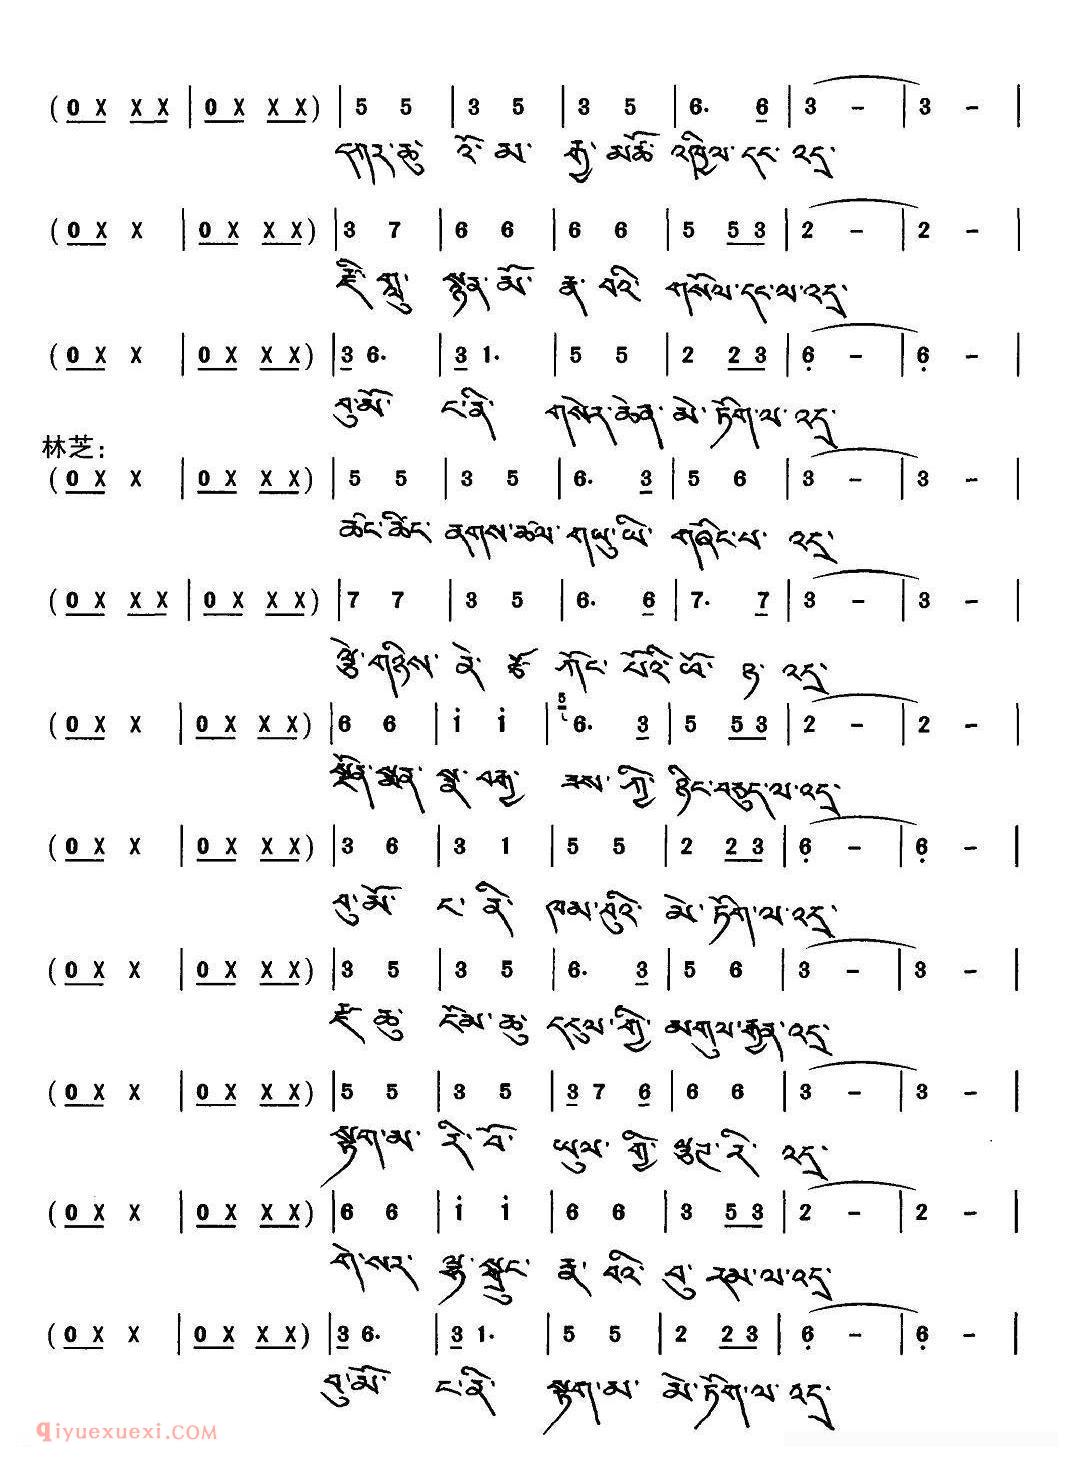 (0 X X X | 0 X X X) | 5 5 | 3 5 | 3 5 | 6. 6 | 3 – | 3 – |
དཀར་ཆུ་ འོ་མ་ རྒྱ་མཚོ་ འཁྱིལ་དང་འདྲ་
(0 X X | 0 X X X) | 3 7 | 6 6 | 6 6 | 5 5 3 | 2 – | 2 – |
རྫི་གླུ་ སྙན་མོ་ རྣ་བའི་ གསོལ་དང་ལ་འདྲ་
(0 X X | 0 X X X) | 3 6. | 3 1. | 5 5 | 2 2 3 | 6 – | 6 – |
བུ་མོ་ ང་ནི་ གསེར་ཆེན་མེ་ཏོག་ལ་འདྲ་
林芝:
(0 X X | 0 X X X) | 5 5 | 3 5 | 6. 3 | 5 6 | 3 – | 3 – |
ཚང་ཚིང་ ནགས་ཚལ་ གཡུ་ཡི་ གཞོང་པ་ འདྲ་
(0 X X X | 0 X X X) | 7 7 | 3 5 | 6. 6 | 7. 7 | 3 – | 3 – |
ལྕེ་གཉིས་ ནེ་ ཙོ་ ཀོང་ པོའི་ ཡོ་ འདྲ་
(0 X X | 0 X X X) | 6 6 | i i | 5 6. 3 | 5 5 3 | 2 – | 2 – |
སྔོན་སྨན་ སྣ་བརྒྱ་ ཟས་ཀྱི་ ཉིང་བཅུད་ལ་འདྲ་
(0 X X | 0 X X X) | 3 6 | 3 1 | 5 5 | 2 2 3 | 6 – | 6 – |
བུ་མོ་ ང་ནི་ ཁམ་བུའི་ མེ་ཏོག་ལ་འདྲ་
(0 X X | 0 X X X) | 3 5 | 3 5 | 6. 3 | 5 6 | 3 – | 3 – |
རྫ་ཆུ་ ངོམ་ཆུ་ དངུལ་གྱི་ མགུལ་རྒྱན་འདྲ་
(0 X X | 0 X X X) | 5 5 | 3 5 | 3 7 6 | 6 6 | 3 – | 3 – |
སྟག་མ་ རི་བོ་ ཡུལ་གྱི་ རི་ འདྲ་
(0 X X | 0 X X X) | 6 6 | i i | 6 6 | 3 5 3 | 2 – | 2 – |
གེ་སར་ ལྷ་སྲུང་ རྣ་བའི་ བུ་རམ་ལ་འདྲ་
(0 X X | 0 X X X) | 3 6. | 3 1. | 5 5 | 2 2 3 | 6 – | 6 – |
བུ་མོ་ ང་ནི་ སྟག་མ་ མེ་ཏོག་ལ་འདྲ་
qiyuexuexi.COM